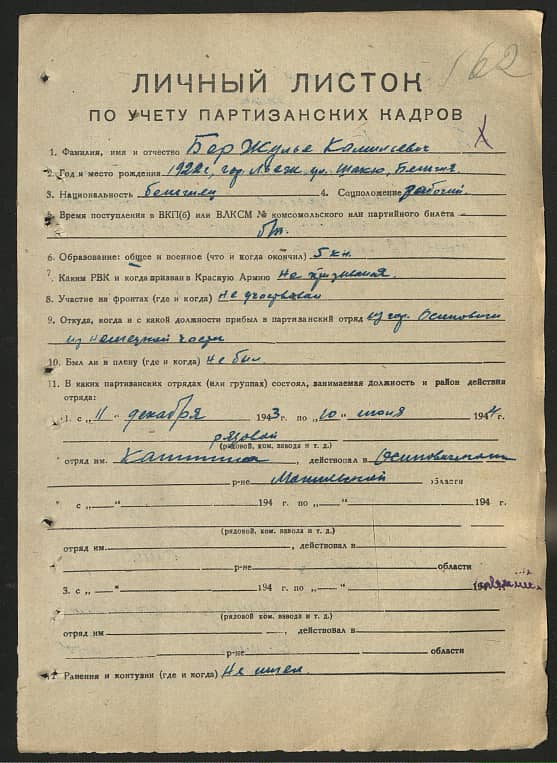 162
ЛИЧНЫЙ ЛИСТОК
ПО УЧЕТУ ПАРТИЗАНСКИХ КАДРОВ
1. Фамилия, имя и отчество Бер Жулье Камильевич
2. Год и место рождения 1922 г, гор. Льеж, ул. Бельгия
3. Национальность бельгиец 4. Соцположение рабочий.
5. Время поступления в ВКП(б) или ВЛКСМ № комсомольского или партийного билета
б/п.
6. Образование: общее и военное (что и когда окончил) 5 кл.
7. Каким РВК и когда призван в Красную Армию не призывался.
8. Участие на фронтах (где и когда) не участвовал
9. Откуда, когда и с какой должности прибыл в партизанский отряд из гор. Осиповичи
из немецкой части
10. Был ли в плену (где и когда) не был
11. В каких партизанских отрядах (или группах) состоял, занимаемая должность и район действия
отряда:
1. с „11" декабря 1943 г. по „10" июля 1944 г.
рядовой
(рядовой, ком. взвода и т. д.)
отряд им. , действовал в Осиповичском
р-не Могилевской области
с „—" 194 г. по „—" 194 г.
(рядовой, ком. взвода и т. д.)
отряд им. , действовал в
р-не области
3. с „—" 194 г. по „—"
(рядовой, ком. взвода и т. д.)
отряд им , действовал в
р-не области
Ранения и контузии (где и когда) Не имел